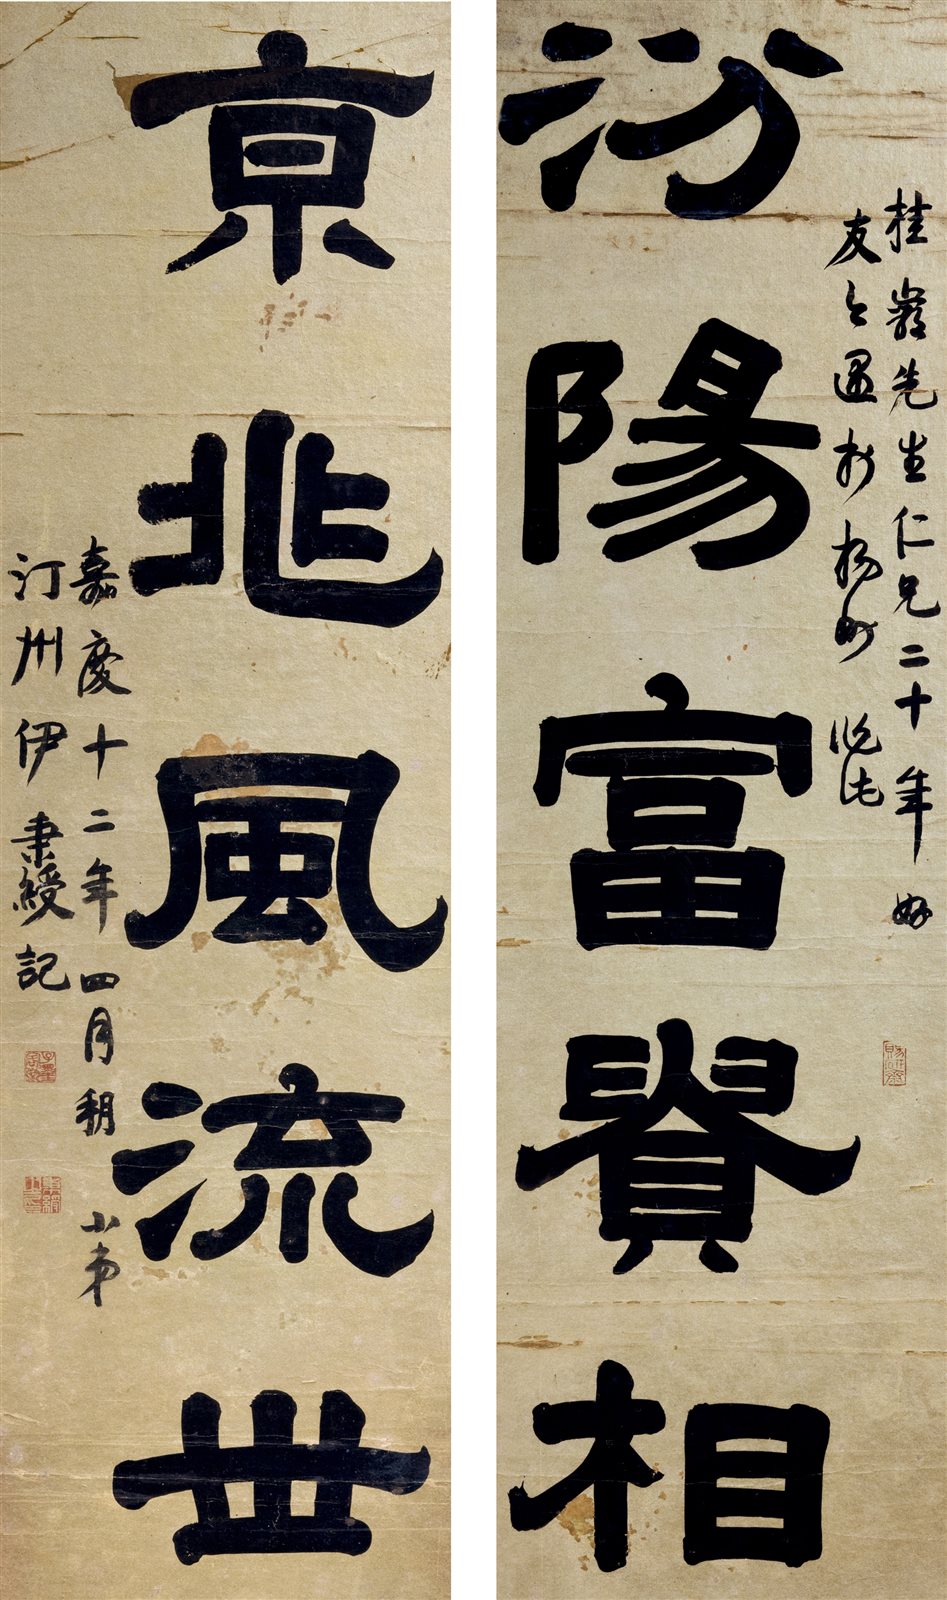 汾陽富貴相
桂巖先生仁兄二十年好
友今遇於楊州
京兆風流世
嘉慶十二年四月朔小弟
汀州伊秉綬記